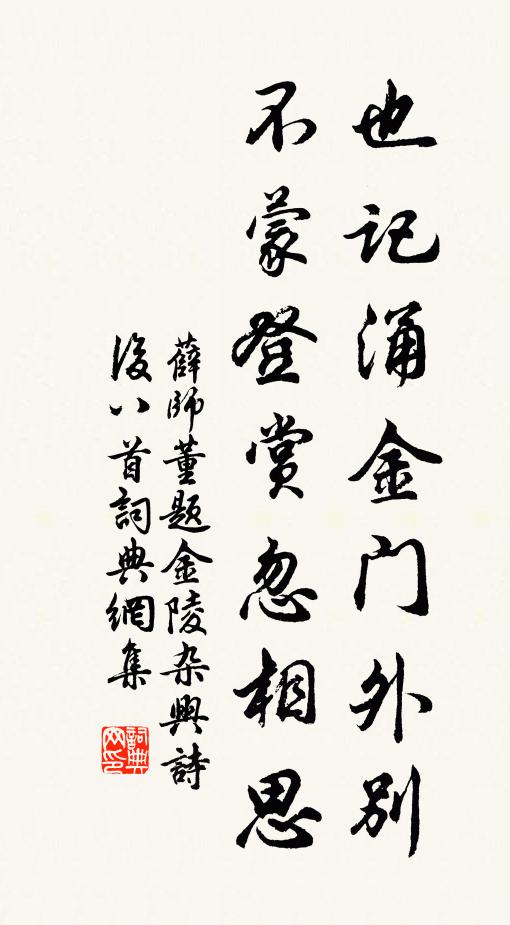 也记涌金门外别
不蒙登赏忽相思
薛師董题金陵杂興詩
後八首詞典網集
詞典网印